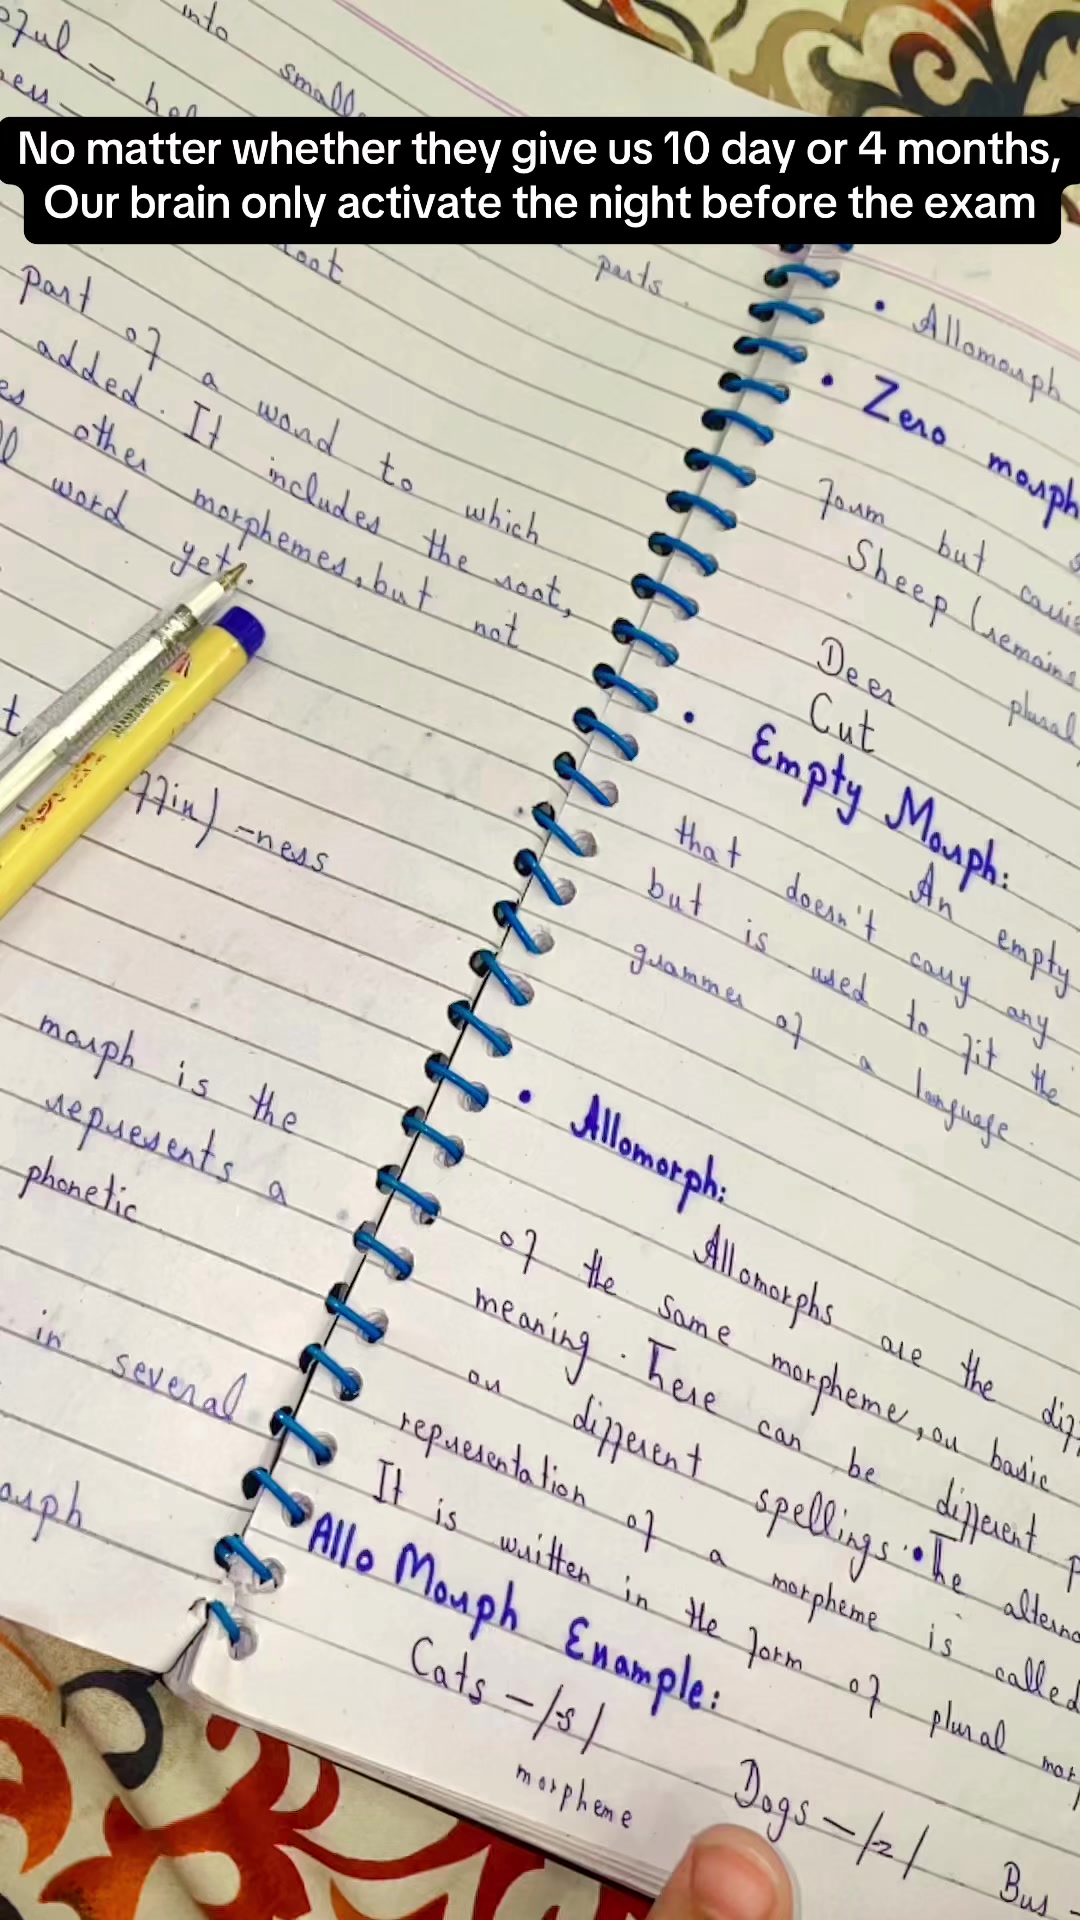 No matter whether they give us 10 day or 4 months,
Our brain only activate the night before the exam
into
small
ful = hel
ness -
root
parts.
part of a word to which
added. It includes the root,
es other morphemes, but not
word yet.
-ness
morph is the
represents a
phonetic
in several
morph
• Allomorph
• Zero morph
form but carrie
Sheep (remains
plural
Deer
Cut
• Empty Morph:
An empty
that doesn't carry any
but is used to fit the
grammer of a language.
• Allomorph:
Allomorphs are the diff
of the same morpheme, or basic
meaning. There can be different p
or different spellings. • The alterna
representation of a morpheme is called
It is written in the form of plural mor
Allo Morph Example:
Cats - /s/
morpheme
Dogs - /z/
Bus -